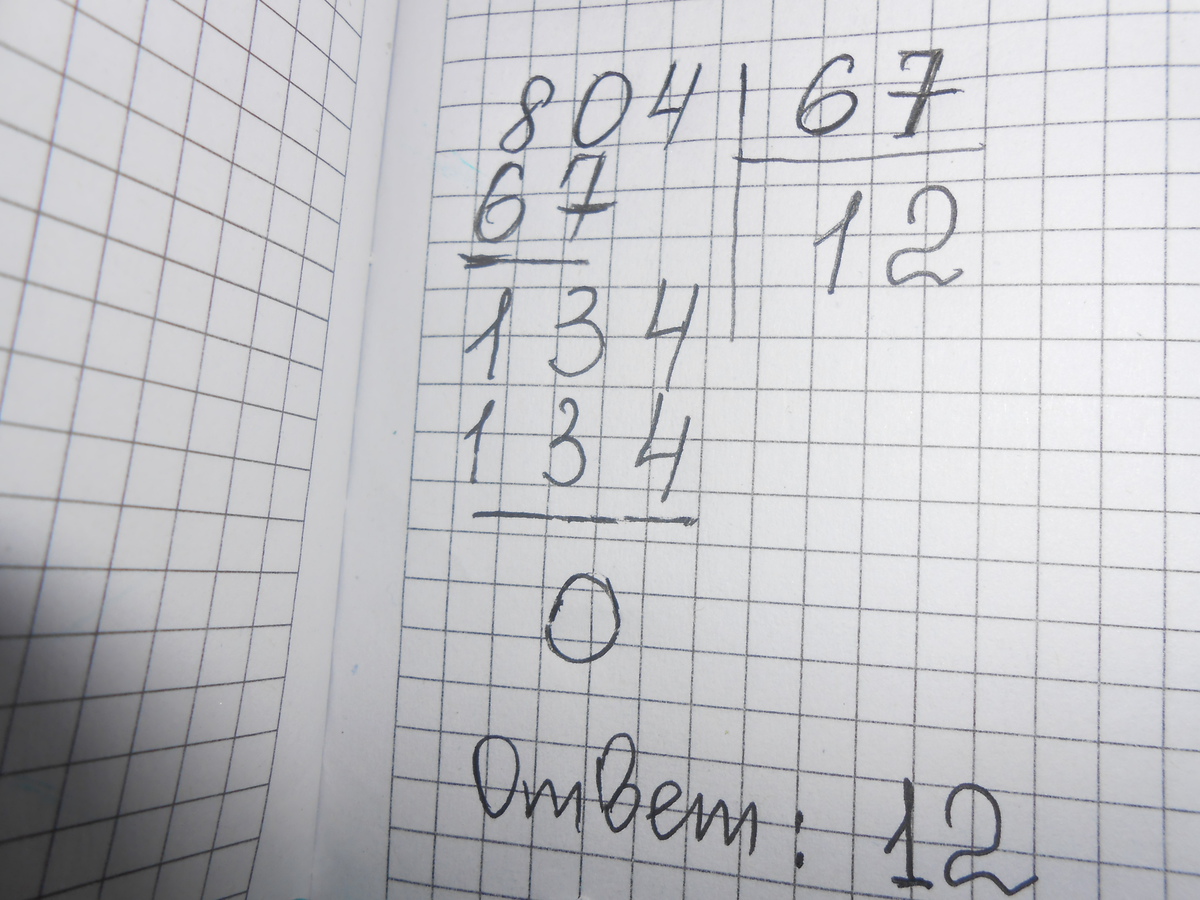 804 | 67
67 | 12
134
134
0
Ответ: 12